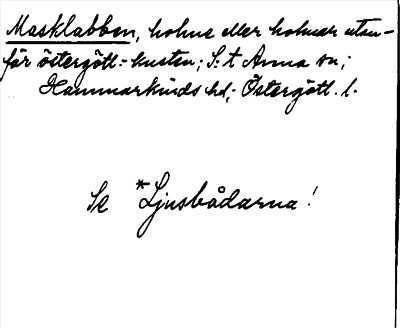 Masklabben, holme eller holmar utan-
för östergötl.-kusten; S:t Anna sn;
Hammarkinds hd; Östergötl. l.
Se *Ljusbådarna!